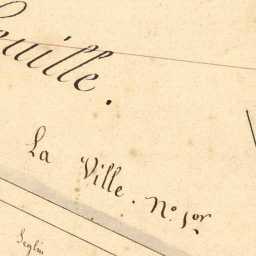 euille.
La Ville. N.º 1.er